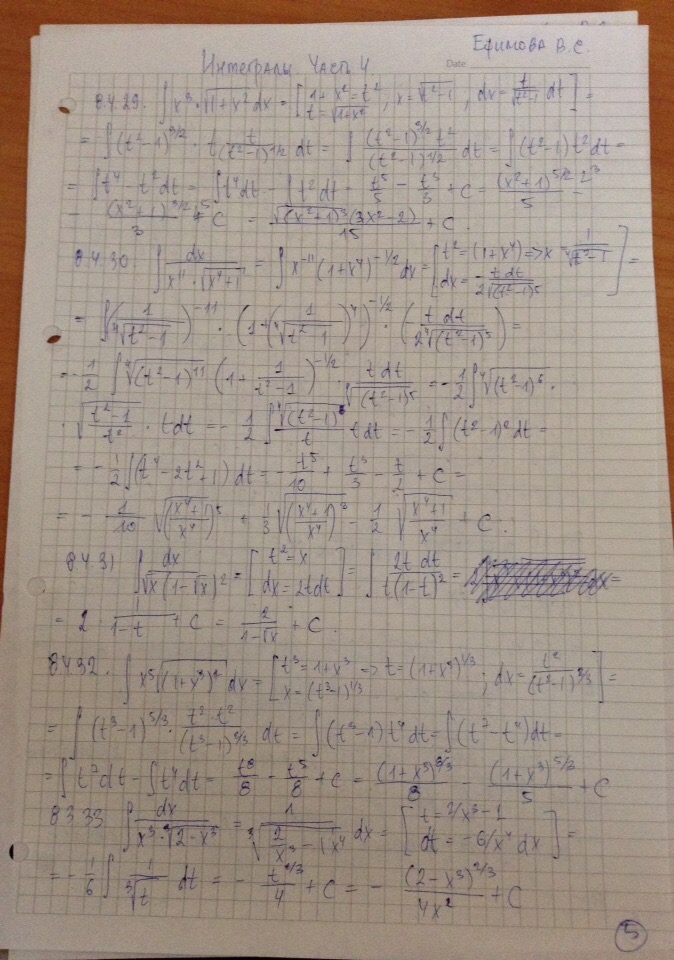 Ефимова В.С.
Интегралы Часть 4
Date
8.4.29. ∫ x³·√(1+x²) dx = [1+x²=t², t=√(1+x²); x=√(t²-1); dx = t/√(t²-1) dt] =
= ∫ (t²-1)^(3/2) · t · t/(t²-1)^(1/2) dt = ∫ (t²-1)^(3/2) t²/(t²-1)^(1/2) dt = ∫ (t²-1) t² dt =
= ∫ t⁴ - t² dt = ∫ t⁴dt - ∫ t² dt = t⁵/5 - t³/3 + C = (x²+1)^(5/2)/5 -
- (x²+1)^(3/2)/3 + C = √((x²+1)³) (3x²-2)/15 + C.
8.4.30 ∫ dx/(x¹¹·√(x⁴+1)) = ∫ x⁻¹¹(1+x⁴)^(-1/2) dx = [t² = (1+x⁴) => x = 1/⁴√(t²-1); dx = - t dt/(2 ⁴√((t²-1)⁵))] =
= ∫ (1/⁴√(t²-1))⁻¹¹ · (1+(1/⁴√(t²-1))⁴)^(-1/2) · (t dt/(2 ⁴√((t²-1)⁵))) =
= -1/2 ∫ ⁴√((t²-1)¹¹) (1+ 1/(t²-1))^(-1/2) · t dt/⁴√((t²-1)⁵) = -1/2 ∫ ⁴√((t²-1)⁶) ·
· √((t²-1)/t²) · t dt = -1/2 ∫ ⁴√((t²-1)⁸)/t t dt = -1/2 ∫ (t²-1)² dt =
= -1/2 ∫ (t⁴-2t²+1) dt = - t⁵/10 + t³/3 - t/2 + C =
= - 1/10 √((x⁴+1)/x⁴)⁵ + 1/3 √((x⁴+1)/x⁴)³ - 1/2 √((x⁴+1)/x⁴) + C.
8.4.31 ∫ dx/(√x(1-√x)²) = [t²=x, dx=2tdt] = ∫ 2t dt/(t(1-t)²) =
= 2 · 1/(1-t) + C = 2/(1-√x) + C.
8.4.32. ∫ x⁵ ³√((1+x³)²) dx = [t³=1+x³ => t=(1+x³)^(1/3), x=(t³-1)^(1/3); dx = t²/(t³-1)^(2/3)] =
= ∫ (t³-1)^(5/3) · t²·t²/(t³-1)^(2/3) dt = ∫ (t³-1) t⁴ dt = ∫ (t⁷-t⁴) dt =
= ∫ t⁷dt - ∫ t⁴dt = t⁸/8 - t⁵/8 + C = (1+x³)^(8/3)/8 - (1+x³)^(5/3)/5 + C
8.3.33 ∫ dx/(x³·³√(2-x³)) = 1/(³√(2/x³ - 1) x⁴) dx = [t=2/x³-1, dt = -6/x⁴ dx] =
= -1/6 ∫ 1/³√t dt = - t^(2/3)/4 + C = - (2-x³)^(2/3)/4x² + C
5